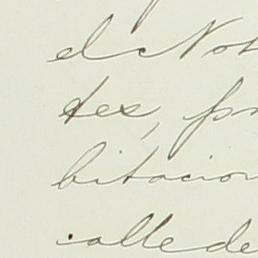 el Not
tes, pr
bitacion
calle de